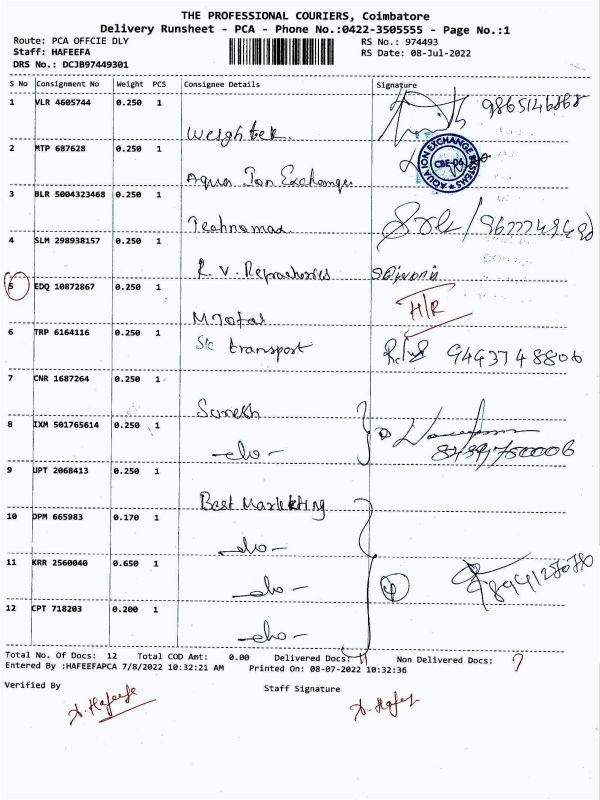 THE PROFESSIONAL COURIERS, Coimbatore
Delivery Runsheet - PCA - Phone No.:0422-3505555 - Page No.:1
Route: PCA OFFCIE DLY RS No.: 974493
Staff: HAFEEFA RS Date: 08-Jul-2022
DRS No.: DCJB97449301
S No Consignment No Weight PCS Consignee Details Signature
1 VLR 4605744 0.250 1 Weightek 9865146868
2 MTP 687628 0.250 1 Aqua Ion Exchange AQUA ION EXCHANGE SYSTEMS CBE-06
3 BLR 5004323468 0.250 1 Technomax
4 SLM 298938157 0.250 1 R. V.
5 EDQ 10872867 0.250 1 H/R
6 TRP 6164116 0.250 1 transport 9443748806
7 CNR 1687264 0.250 1 Suresh
8 IXM 501765614 0.250 1 -do-
9 UPT 2068413 0.250 1 Best Marketing
10 DPM 665983 0.170 1 -do-
11 KRR 2560040 0.650 1 -do- 4
12 CPT 718203 0.200 1 -do-
Total No. Of Docs: 12 Total COD Amt: 0.00 Delivered Docs: 11 Non Delivered Docs:
Entered By :HAFEEFAPCA 7/8/2022 10:32:21 AM Printed On: 08-07-2022 10:32:36
Verified By Staff Signature
A. Hafeefa A. Hafeefa